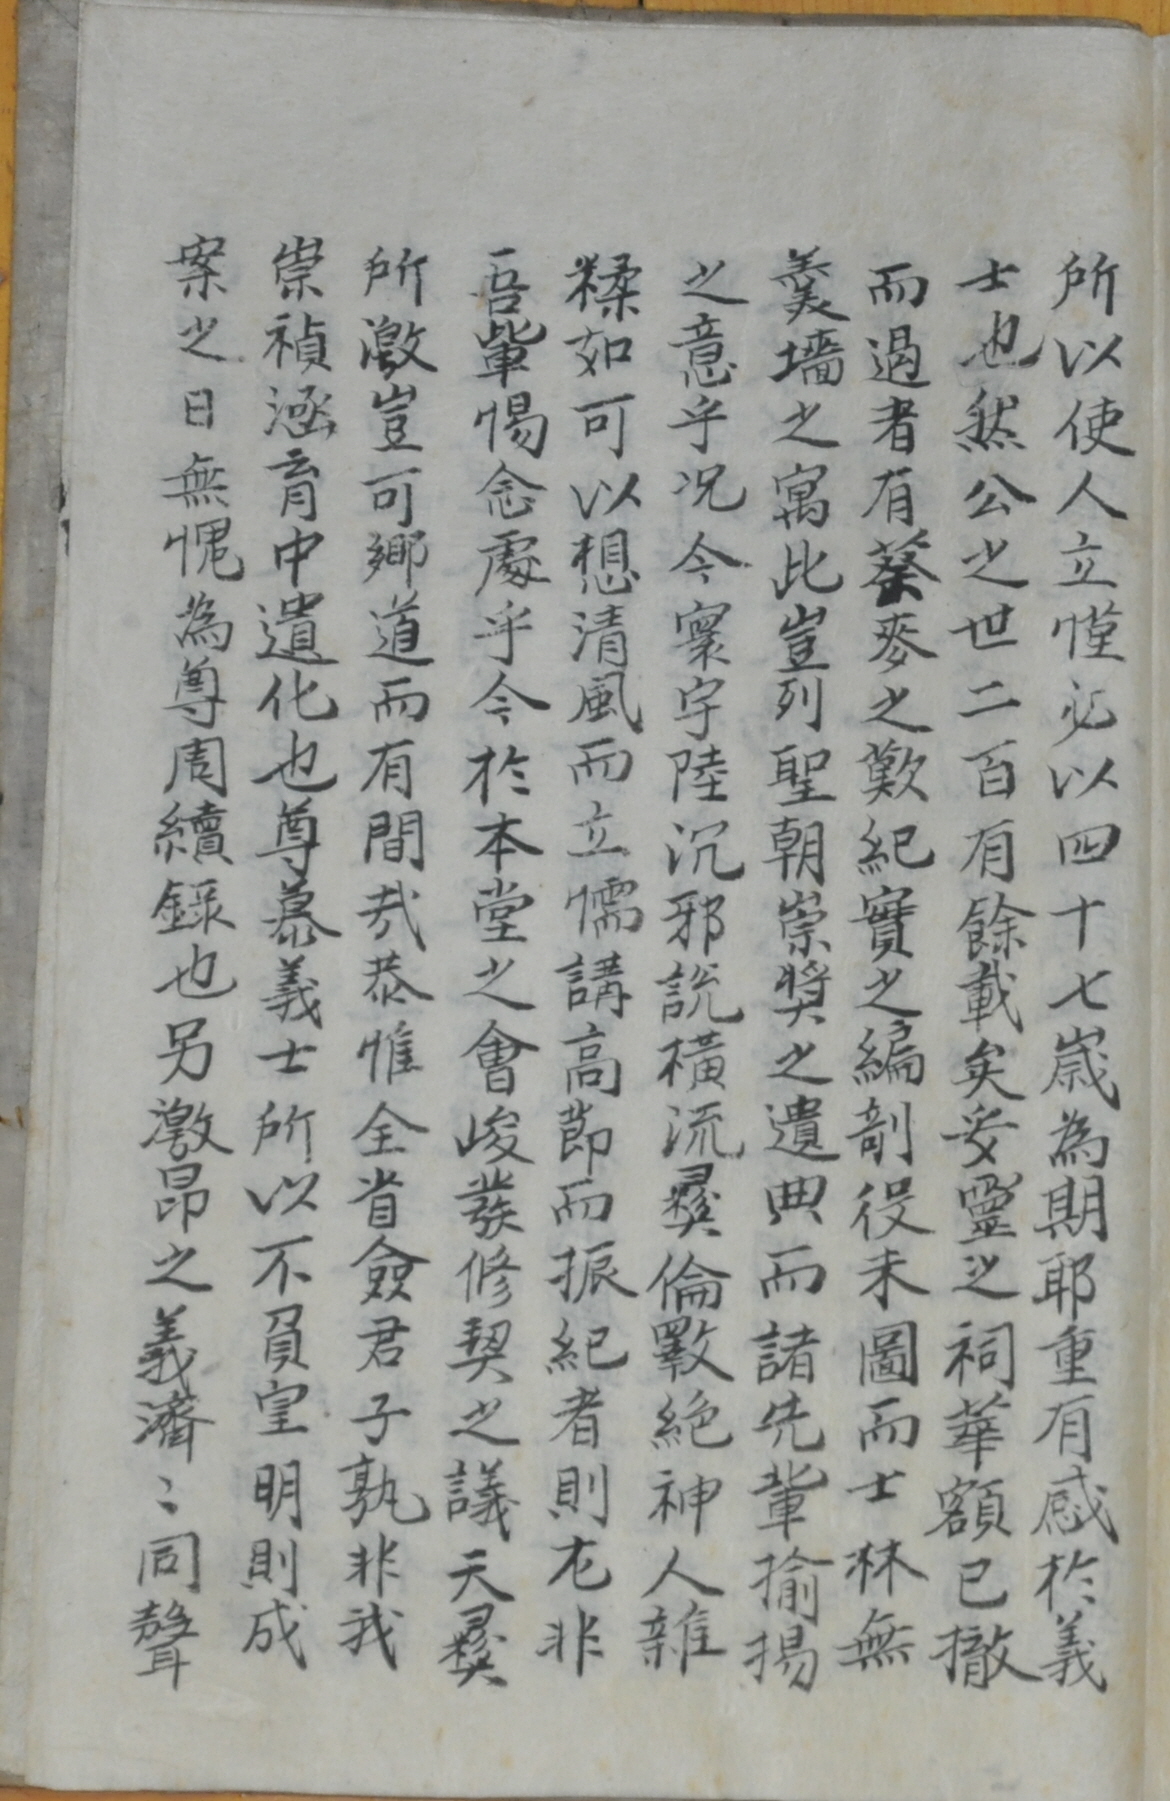 所以使人立慬必以四十七歲為期耶重有感於義
士也然公之世二百有餘載矣妥靈之祠華額已撤
而過者有蔡麥之歎紀實之編剞役未圖而士林無
羹墻之寓比豈列聖朝崇獎之遺典而諸先輩揄揚
之意乎况今寰宇陸沉邪說橫流彛倫斁絶神人雜
糅如可以想清風而立懦講高節而振紀者則尤非
吾輩惕念處乎今於本堂之會峻發修契之議天彛
所激豈可鄉道而有間㢤恭惟全省僉君子孰非我
崇禎涵育中遺化也尊慕義士所以不負皇明則成
案之日無愧為尊周續錄也另激昂之義濟〻同聲